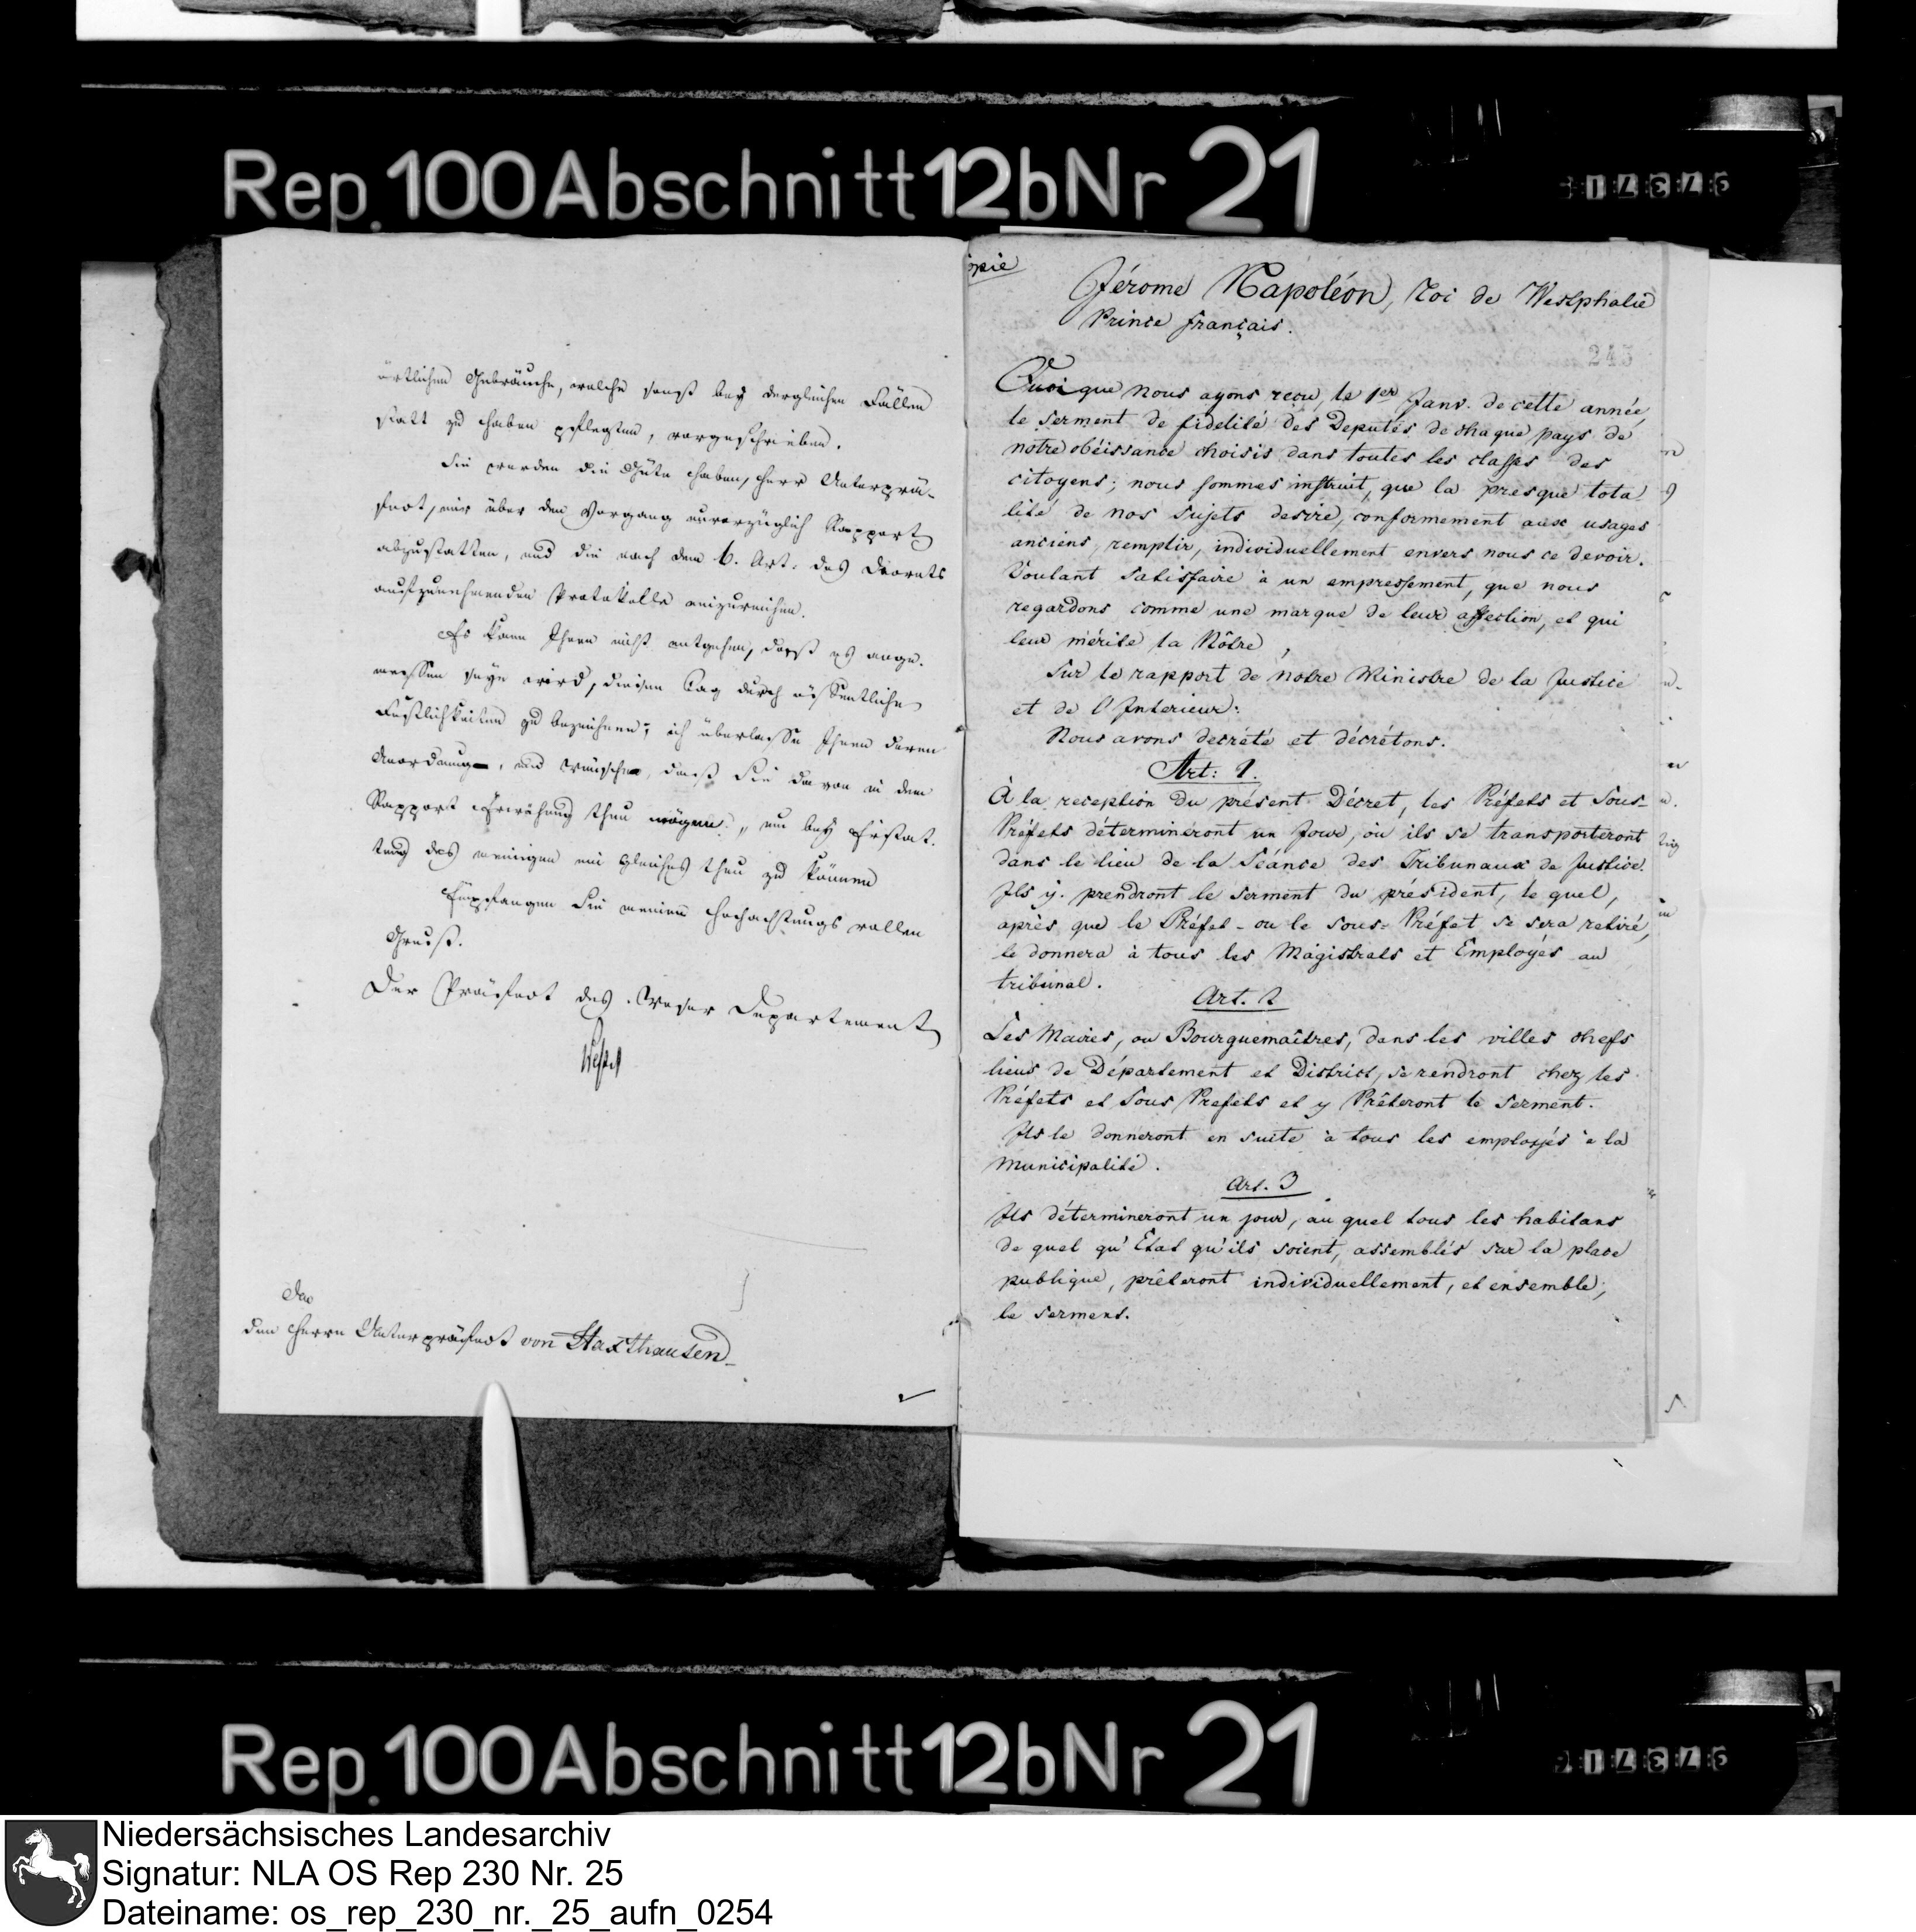 Rep. 100 Abschnitt 12b Nr 21
örtlichen Gebräuche, welche sonst bey dergleichen Fällen
statt zu haben pflegten, vorgeschrieben.
Sie werden die Güte haben, Herr Unterprä-
fect, mir über den Vorgang unverzüglich Rapport
abzustatten, und die nach dem 6. Art. des Decrets
aufzunehmenden Protokolle einzureichen.
Es kann Ihnen nicht entgehen, daß es ange-
messen seyn wird, diesen Tag durch öffentliche
Festlichkeiten zu bezeichnen; ich überlasse Ihnen deren
Anordnung, und wünsche, daß Sie davon in dem
Rapport Erwähnung thun mögen, um bey Erstat-
tung des meinigen ein Gleiches thun zu können
Empfangen Sie meinen hochachtungsvollen
Gruß.
Der Präfect des Weser Departement
An
den Herrn Unterpräfect von Haxthausen
opie
Jérome Napoléon, Roi de Westphalie
Prince français.
243
Quoique nous ayons reçu, le 1er Janv. de cette année,
le serment de fidelité des Deputés de chaque pays de
notre obéissance choisis dans toutes les classes des
citoyens; nous sommes instruit, que la presque tota
lité de nos sujets desire, conformement aux usages
anciens, remplir, individuellement envers nous ce devoir.
Voulant satisfaire à un empressement, que nous
regardons comme une marque de leur affection, et qui
leur mérite la Nôtre,
Sur le rapport de notre Ministre de la Justice
et de l'Interieur:
Nous avons decrété et décrétons.
Art: 1.
À la reception du présent Décret, les Préfets et Sous-
Préfets détermineront un Jour, où ils se transporteront
dans le lieu de la Séance des Tribunaux de Justice.
Ils y. prendront le serment du président, le quel,
après que le Préfet - ou le sous-Préfet se sera retiré,
le donnera à tous les Magistrats et Employés au
tribunal.
Art. 2
Les Maires, ou Bourguemaîtres, dans les villes chefs
lieus de Département et District, se rendront chez les
Préfets et Sous Prefets et y Prêteront le serment.
Ils le donneront en suite à tous les employés à la
municipalité.
Art. 3
Ils détermineront un jour, au quel tous les habitans
de quel qu'État qu'ils soient, assemblés sur la place
publique, prêteront individuellement, et ensemble,
le serment.
Rep. 100 Abschnitt 12b Nr 21
Niedersächsisches Landesarchiv
Signatur: NLA OS Rep 230 Nr. 25
Dateiname: os_rep_230_nr._25_aufn_0254